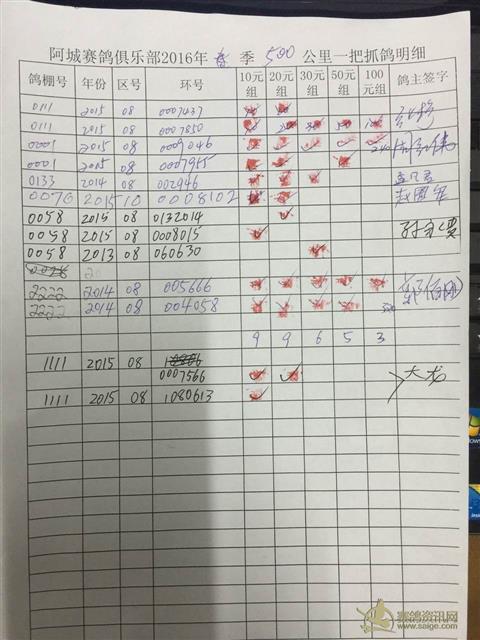 阿城赛鸽俱乐部2016年春季500公里一把抓鸽明细
鸽棚号 年份 区号 环号 10元组 20元组 30元组 50元组 100元组 鸽主签字
0111 2015 08 0007437
0111 2015 08 0007850
0001 2015 08 0009046 240
0001 2015 08 0007955
0133 2014 08 002946
0070 2015 10 0008102
0058 2015 08 0132014
0058 2015 08 0008015
0058 2013 08 060630
2222 2014 08 005666
2222 2014 08 004058
9 9 6 5 3
1111 2015 08 0007566
1111 2015 08 1080613 大龙
赛鸽资讯网
www.saige.com